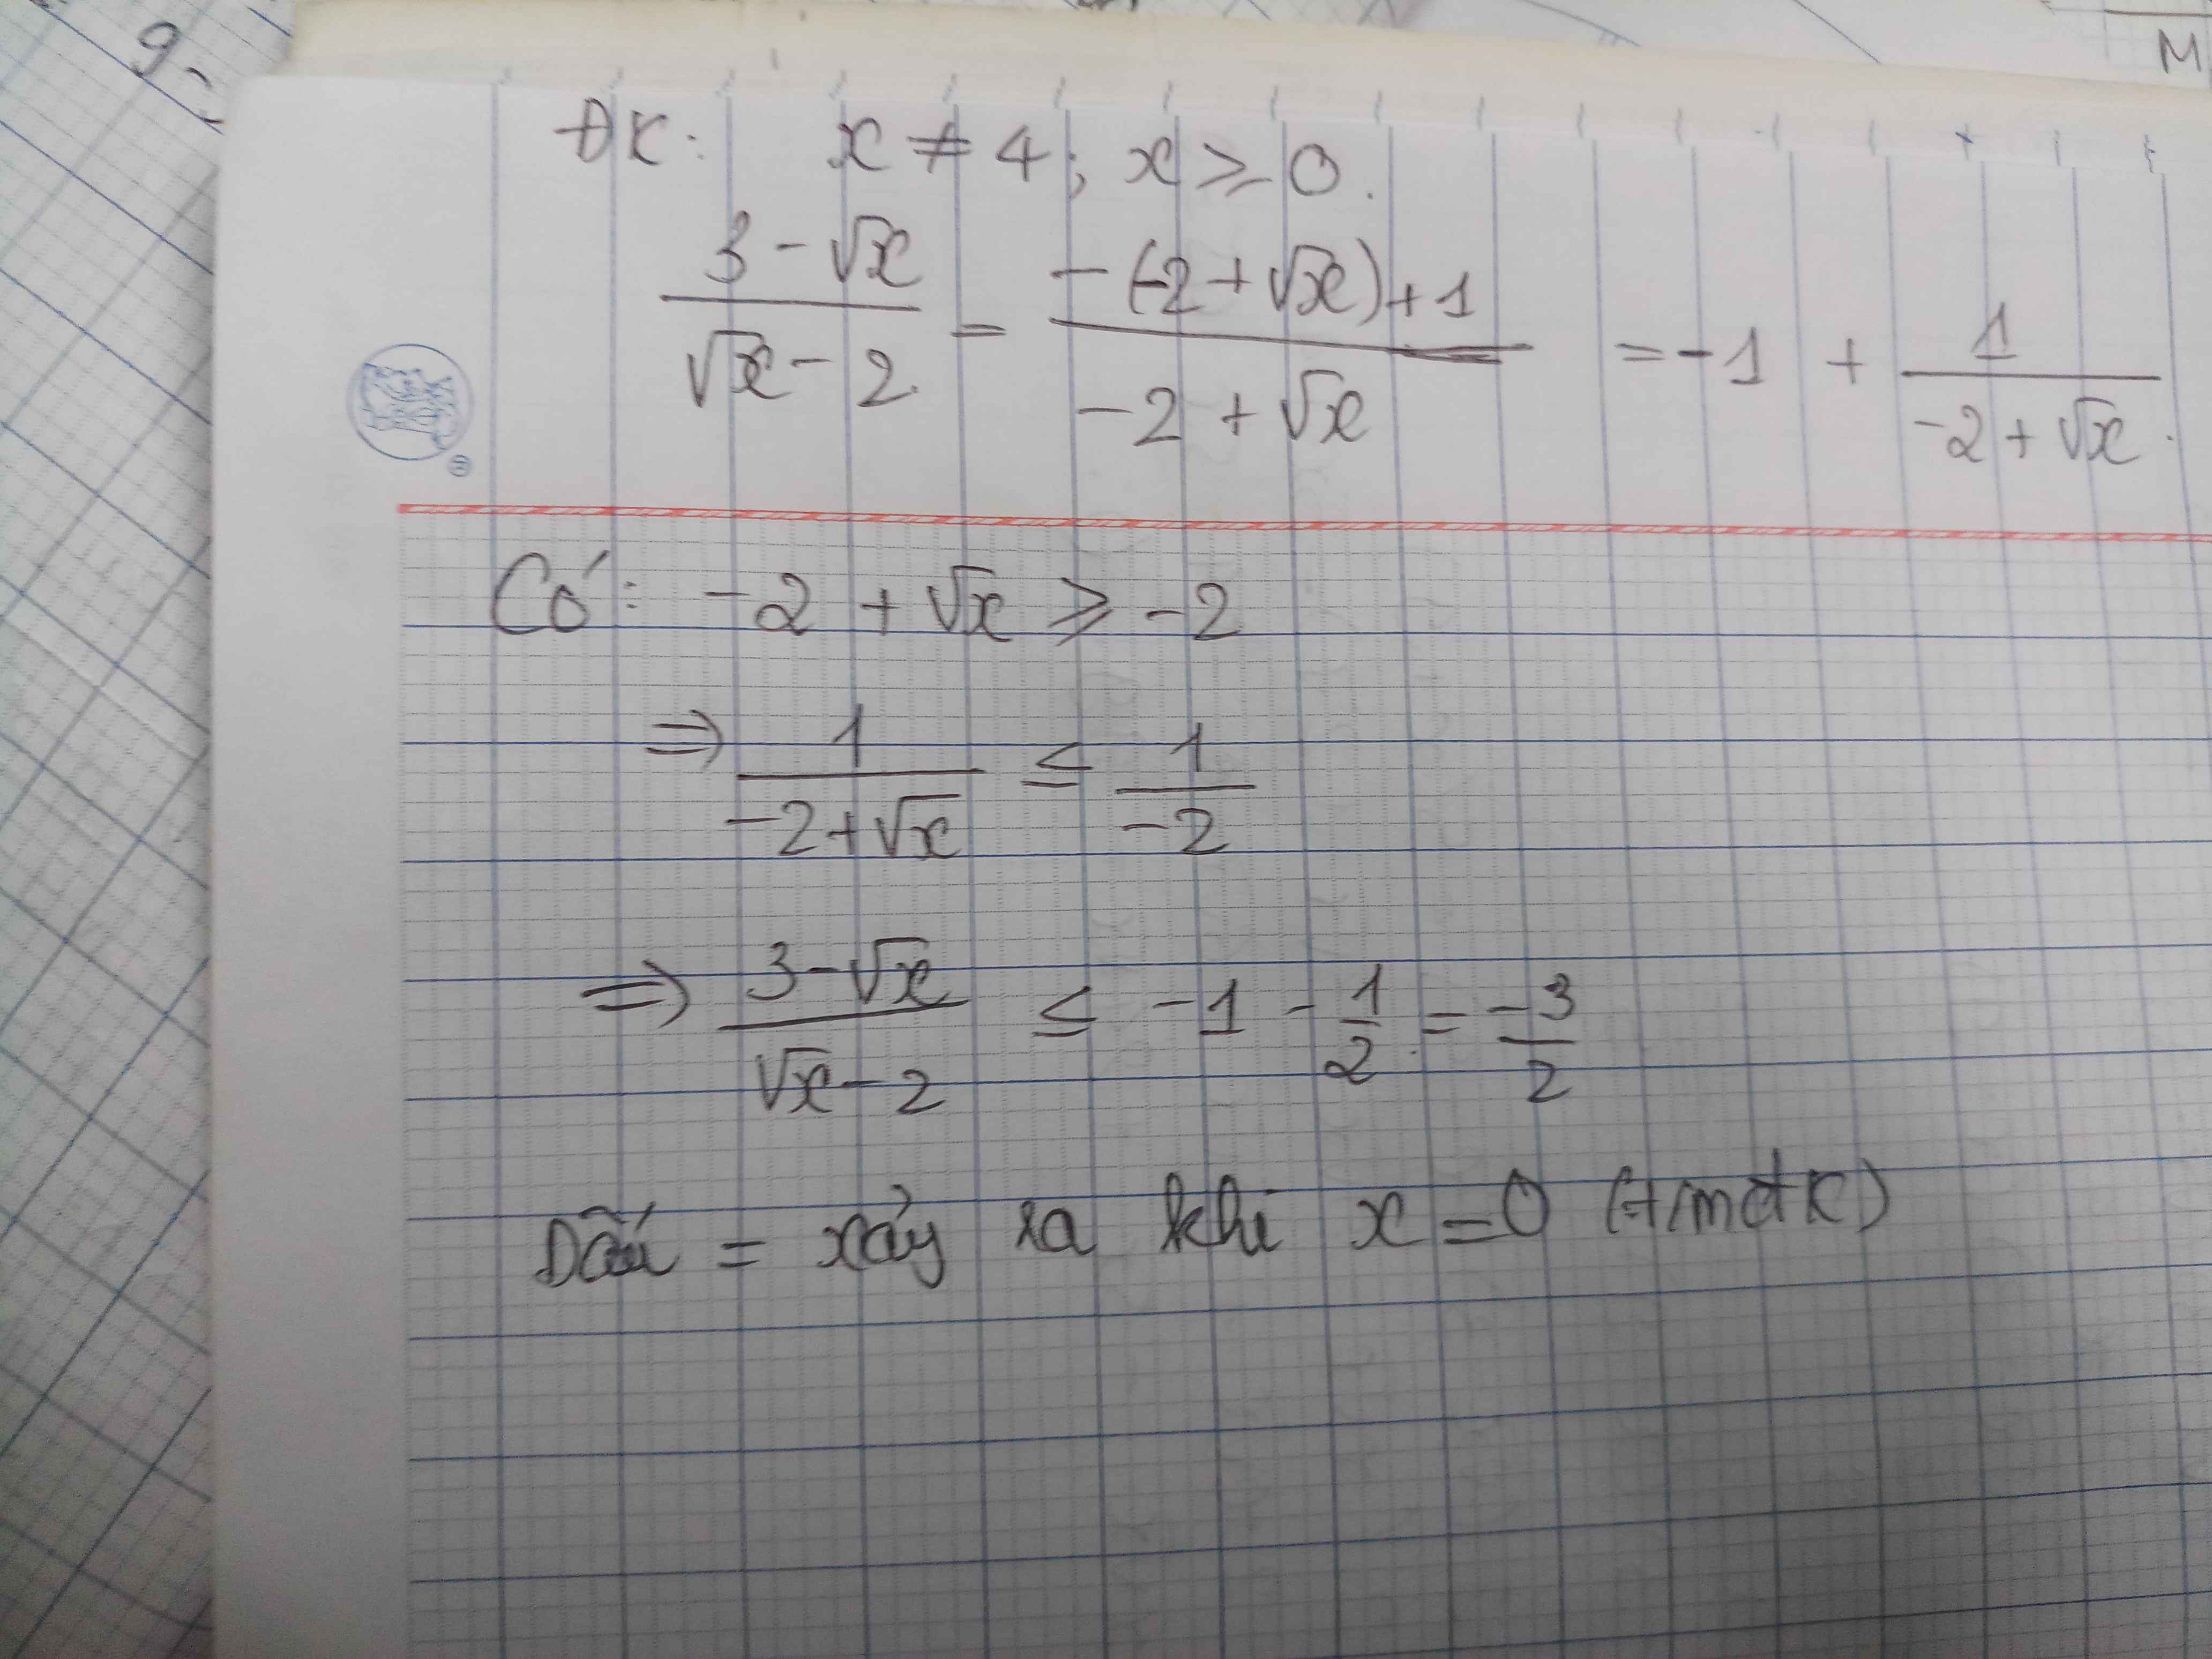 9
M
ĐK: x ≠ 4; x ≥ 0.
(3 - √x)/(√x - 2) = (-(-2 + √x) + 1)/(-2 + √x) = -1 + 1/(-2 + √x).
Có: -2 + √x ≥ -2
⇒ 1/(-2 + √x) ≤ 1/(-2)
⇒ (3 - √x)/(√x - 2) ≤ -1 - 1/2 = -3/2
Dấu = xảy ra khi x = 0 (t/mđk)